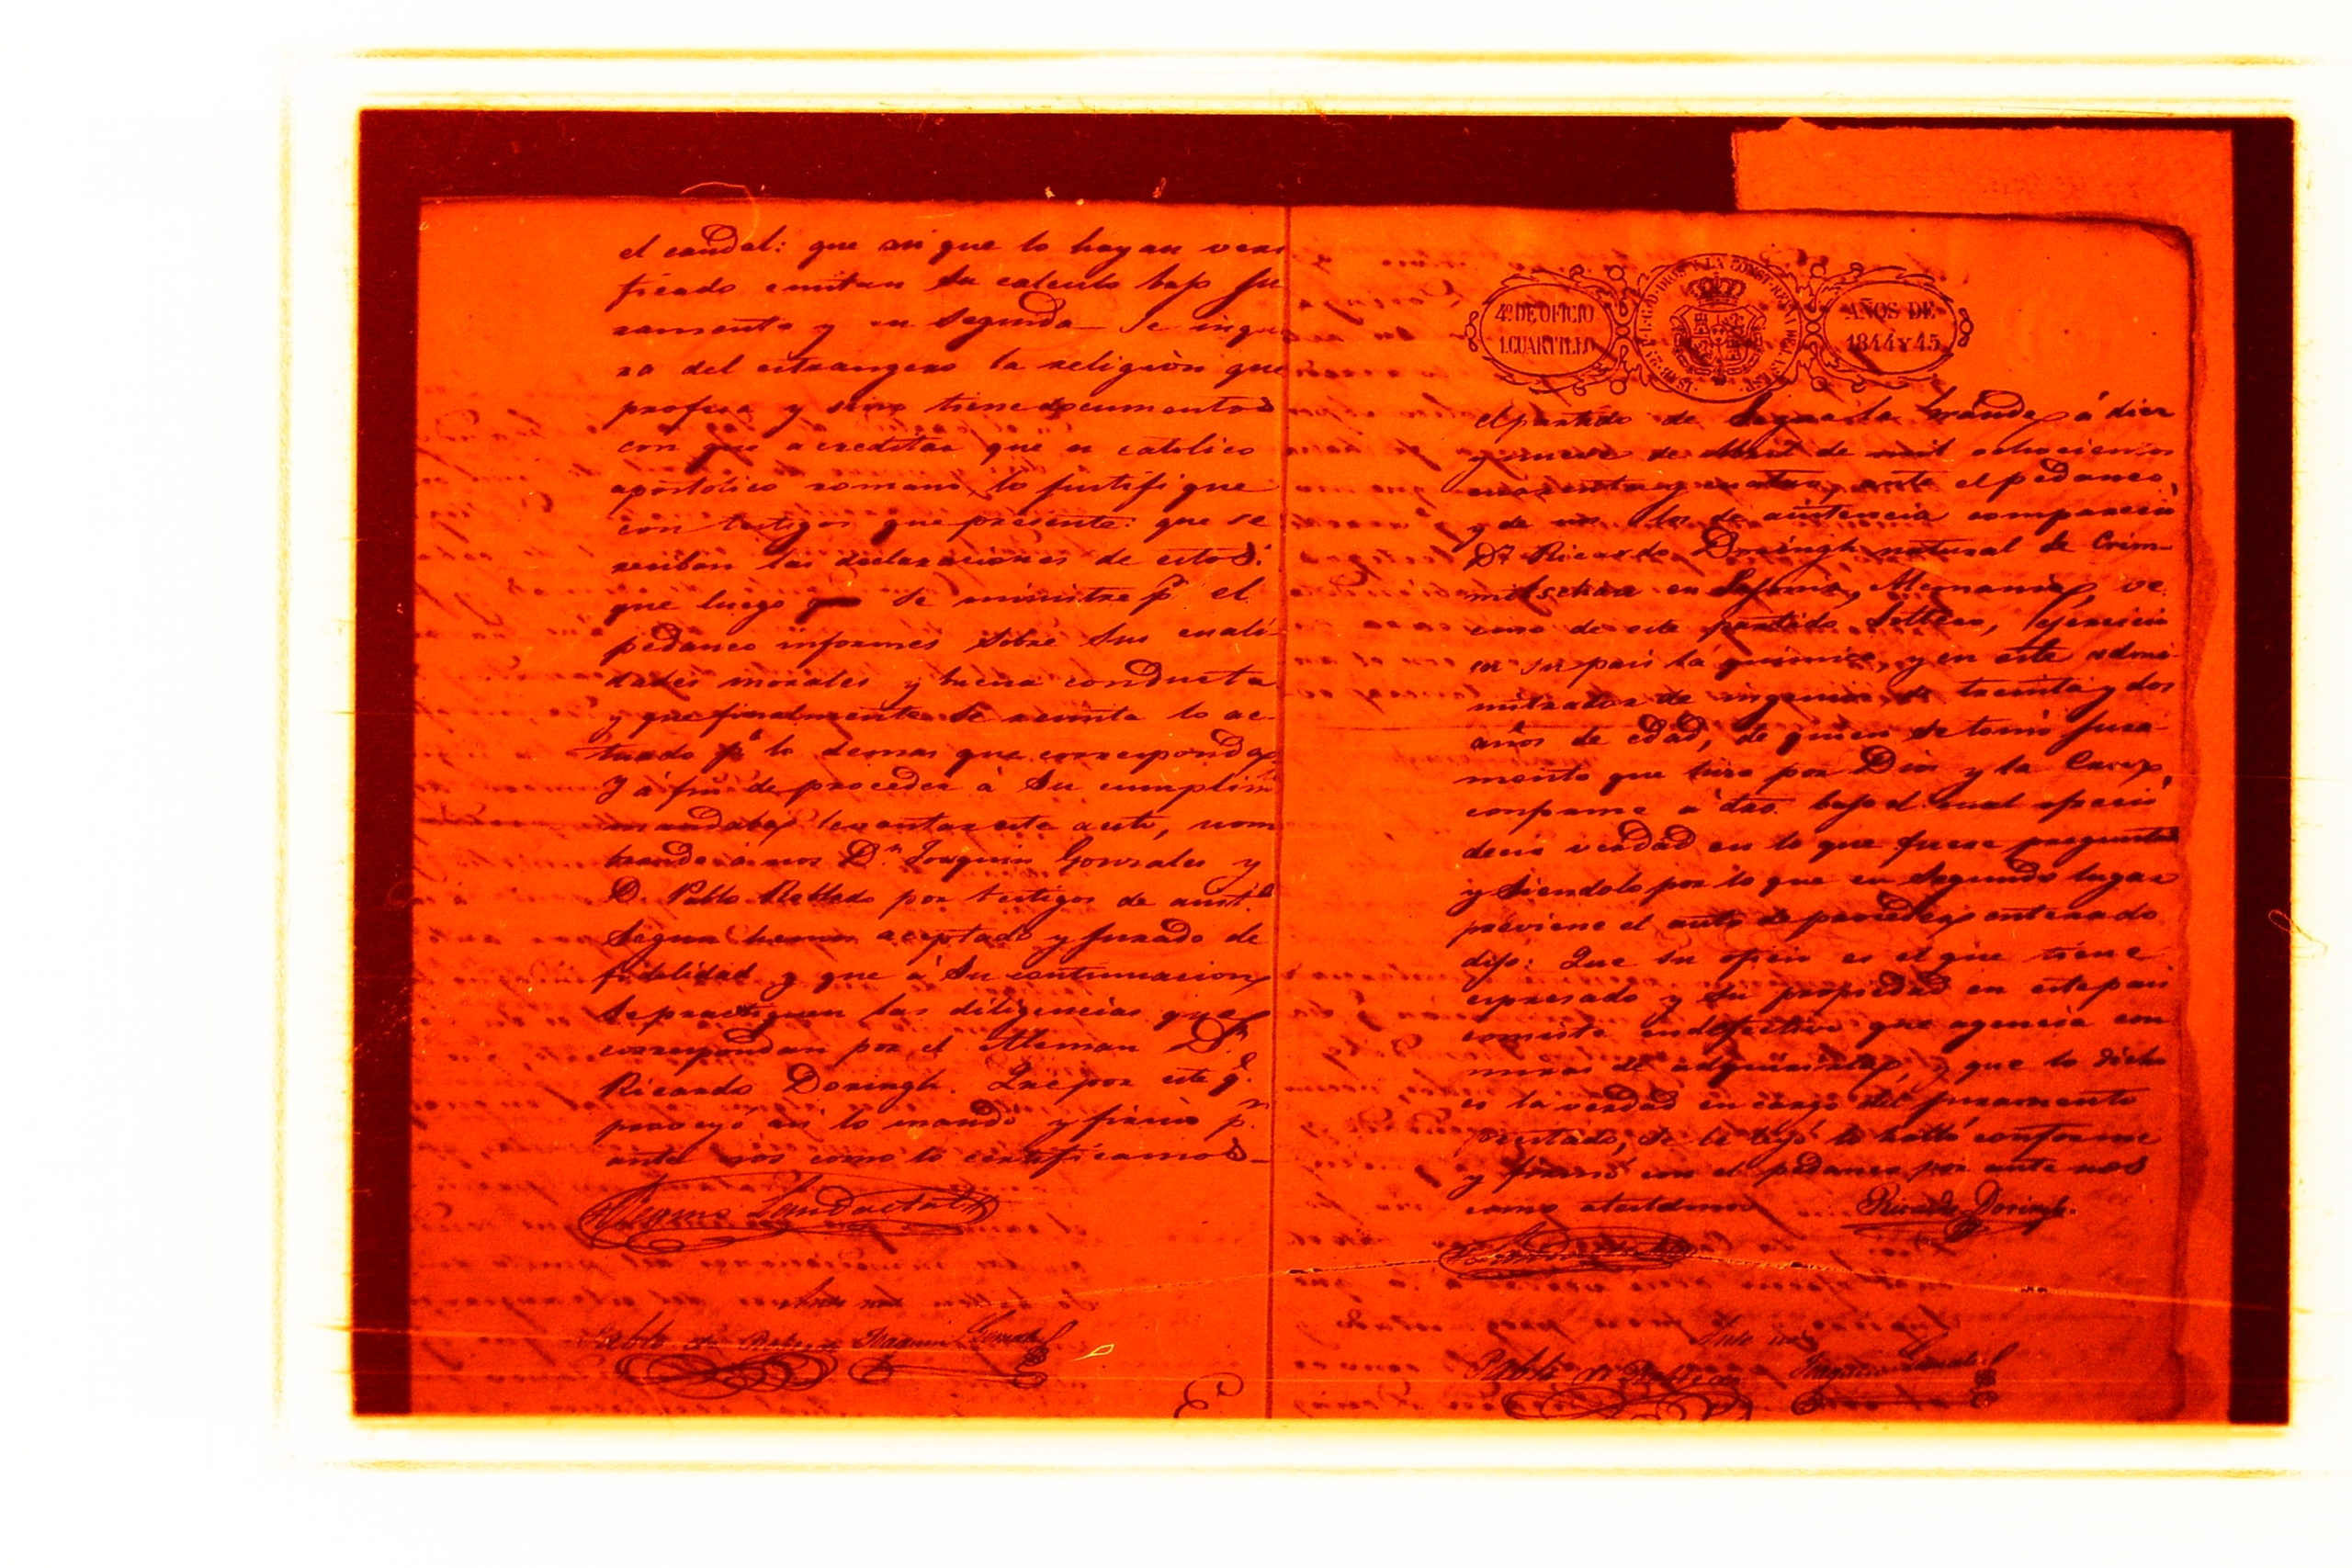 el caudal: que asi que lo hayan veri
ficado emitan su calculo bajo ju
ramento y en segunda se inquie
ra del estrangero la religiòn que
profesa y sino tiene documentos
con que acreditar que es catolico
apostòlico romano, lo justifique
con testigos que presente: que se
reciban las declaraciones de estos:
que luego se ministre pr. el
pedaneo informes sobre sus cuali-
dades morales y buena conducta
y que finalmente se remita lo ac-
tuado pa. lo demas que corresponda
Y á fin de proceder à su cumplimto
mandaba levantar este auto, nom
brando à nos Dn. Joaquin Gonzales y
D. Pablo por testigos de asista.
segun hemos aceptado y jurado de
fidelidad y que à su continuacion
se practiquen las diligencias que
correspondan por el Aleman Dn.
Ricardo Doringh. Que por este q.e
proveyó asi lo mandó y firmó pr.
ante nos como lo certificamos
Ante nos
Pablo de Joaquin Gonzales
4º. DE OFICIO
1. CUARTILLO
AÑOS DE
1844 Y 45
el partido de Sagua la Grande á diez
y nueve de Abril de mil ochocientos
cuarenta y cuatro, ante el pedaneo,
y de nos los de asistencia compareciò
Dn. Ricardo Doringh natural de Crim-
mitschau en Sajonia, Alemania, ve
cino de este partido soltero, ejercicio
en su pais la quimica, y en este admi-
nistrador de ingenio de treinta y dos
años de edad, de quien se tomò jura-
mento que hizo por Dios y la Cruz,
conforme a dro. bajo el cual ofreciò
decir verdad en lo que fuere preguntado
y siendolo por lo que en segundo lugar
previene el auto de proceder enterado
dijo: Que su oficio es el que tiene
espresado y su propiedad en este pais
consiste en que agencia con
miras de adquirirla, y que lo dicho
es la verdad en cargo del juramento
prestado, se le leyó lo halló conforme
y firmó con el pedaneo por ante nos
como
Ricardo Doringh.
Ante nos
Pablo de Joaquin Gonzales